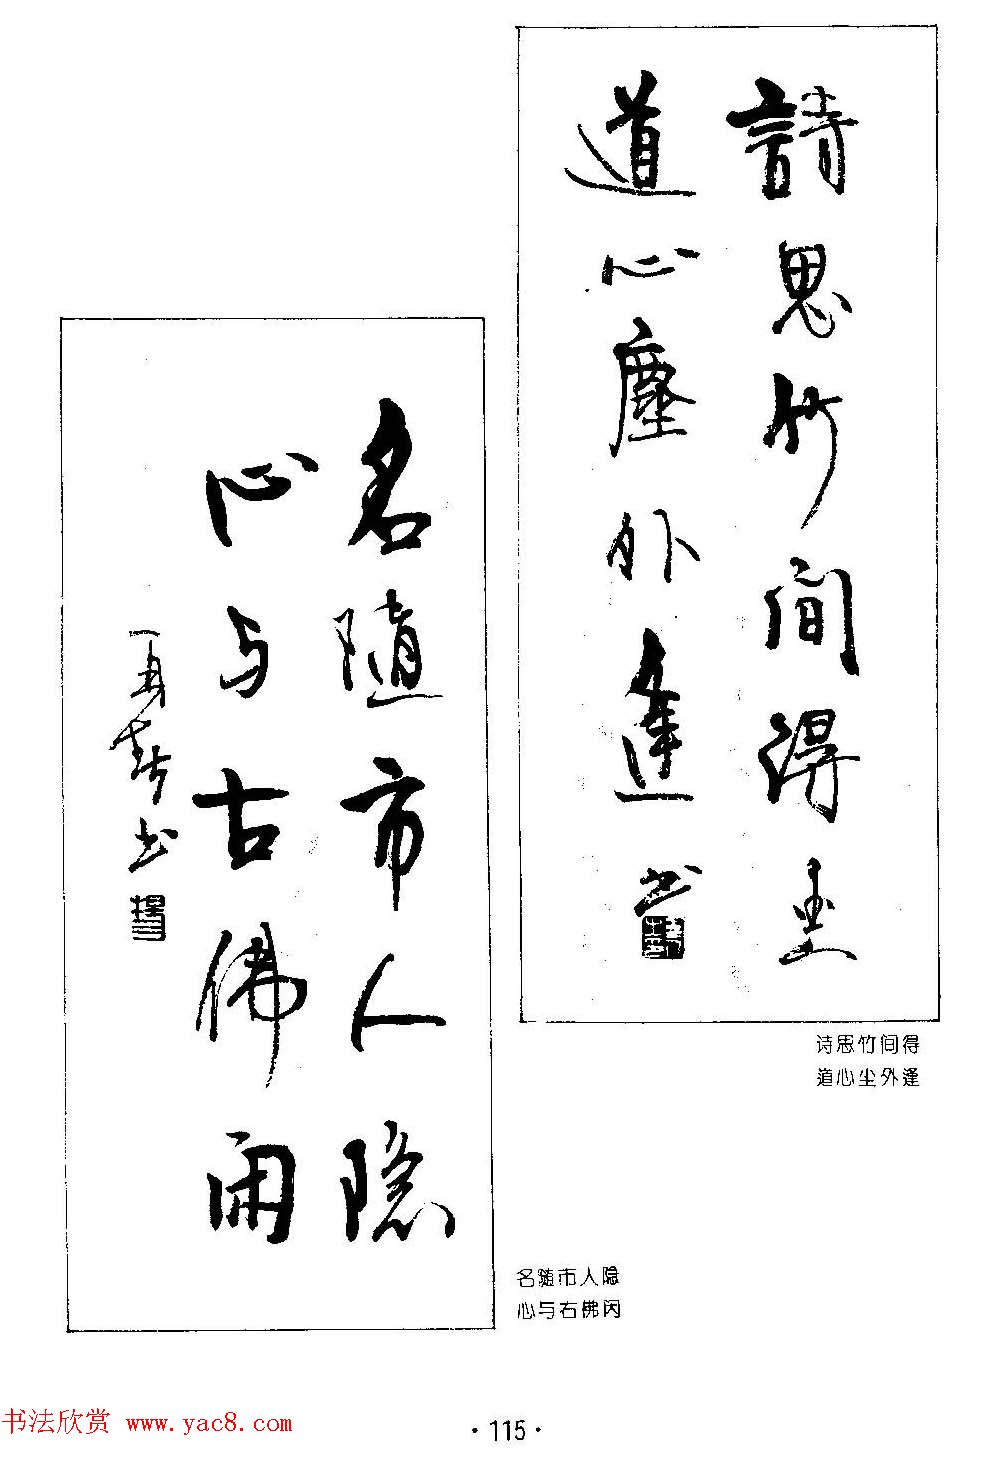 詩思竹间得
道心塵外逢
书
诗思竹间得
道心尘外逢
名随市人隐
心与古佛闲
书
名随市人隐
心与古佛闲
书法欣赏 www.yac8.com
·115·